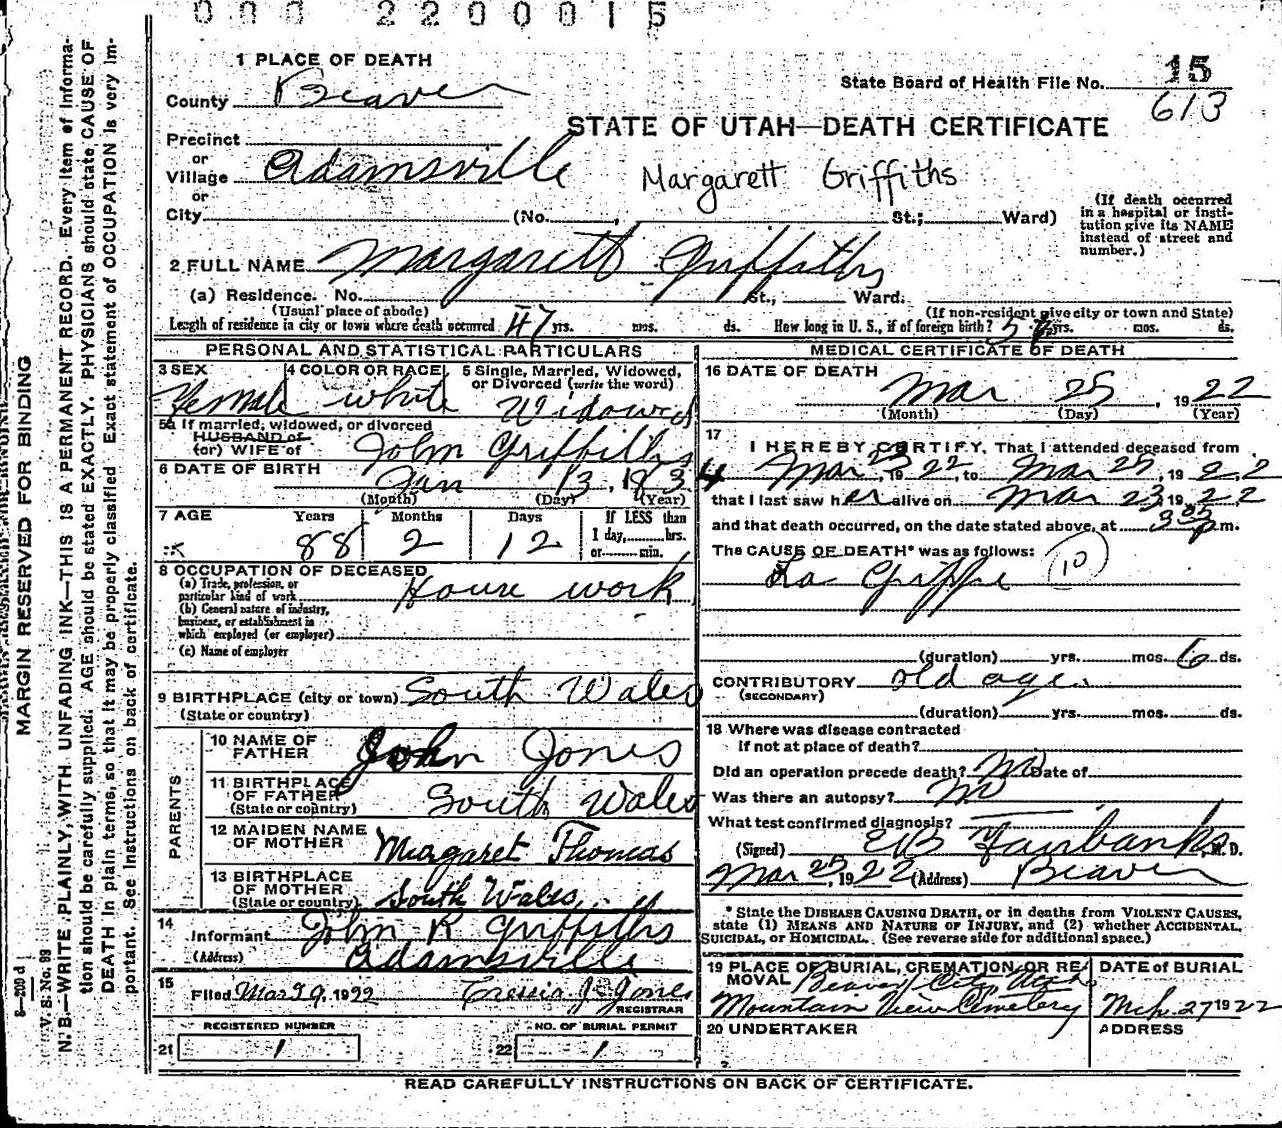 000 2200015
1 PLACE OF DEATH
County Beaver
State Board of Health File No. 15
613
STATE OF UTAH—DEATH CERTIFICATE
Precinct
or
Village Adamsville
or
Margarett Griffiths
City (No. , St.; Ward)
(If death occurred
in a hospital or insti-
tution give its NAME
instead of street and
number.)
2 FULL NAME Margarett Griffiths
(a) Residence. No. St., Ward.
(Usual place of abode)
(If non-resident give city or town and State)
Length of residence in city or town where death occurred 47 yrs. mos. ds. How long in U. S., if of foreign birth? yrs. mos. ds.
PERSONAL AND STATISTICAL PARTICULARS
3 SEX
Female
4 COLOR OR RACE
white
5 Single, Married, Widowed,
or Divorced (write the word)
Widowed
5a If married, widowed, or divorced
HUSBAND of
(or) WIFE of John Griffiths
6 DATE OF BIRTH
Jan 13, 183
(Month) (Day) (Year)
7 AGE Years Months Days
88 2 12
If LESS than
1 day, hrs.
or min.
8 OCCUPATION OF DECEASED
(a) Trade, profession, or
particular kind of work House work
(b) General nature of industry,
business, or establishment in
which employed (or employer)
(c) Name of employer
9 BIRTHPLACE (city or town) South Wales
(State or country)
PARENTS
10 NAME OF
FATHER John Jones
11 BIRTHPLACE
OF FATHER South Wales
(State or country)
12 MAIDEN NAME
OF MOTHER Margaret Thomas
13 BIRTHPLACE
OF MOTHER South Wales
(State or country)
14
Informant John R Griffiths
(Address) Adamsville
15
Filed Mar 29, 1922 Jones
REGISTRAR
REGISTERED NUMBER
21 1
NO. OF BURIAL PERMIT
22 1
MEDICAL CERTIFICATE OF DEATH
16 DATE OF DEATH
Mar 25, 1922
(Month) (Day) (Year)
17
I HEREBY CERTIFY, That I attended deceased from
Mar 23, 1922, to Mar 25, 1922
that I last saw her alive on Mar 23 1922
and that death occurred, on the date stated above, at p m.
The CAUSE OF DEATH* was as follows:
La Grippe 10
(duration) yrs. mos. 6 ds.
CONTRIBUTORY old age.
(SECONDARY)
(duration) yrs. mos. ds.
18 Where was disease contracted
if not at place of death?
Did an operation precede death? No Date of
Was there an autopsy? No
What test confirmed diagnosis?
(Signed) Fairbanks, M. D.
Mar 25, 1922 (Address) Beaver
* State the DISEASE CAUSING DEATH, or in deaths from VIOLENT CAUSES,
state (1) MEANS AND NATURE OF INJURY, and (2) whether ACCIDENTAL,
SUICIDAL, or HOMICIDAL. (See reverse side for additional space.)
19 PLACE OF BURIAL, CREMATION OR RE-
MOVAL Beaver City Utah
Mountain View Cemetery
DATE OF BURIAL
Mch. 27 1922
20 UNDERTAKER
ADDRESS
READ CAREFULLY INSTRUCTIONS ON BACK OF CERTIFICATE.
MARGIN RESERVED FOR BINDING
V. S. No. 99
N. B.—WRITE PLAINLY, WITH UNFADING INK—THIS IS A PERMANENT RECORD. Every item of informa-
tion should be carefully supplied. AGE should be stated EXACTLY. PHYSICIANS should state CAUSE OF
DEATH in plain terms, so that it may be properly classified. Exact statement of OCCUPATION is very im-
portant. See instructions on back of certificate.